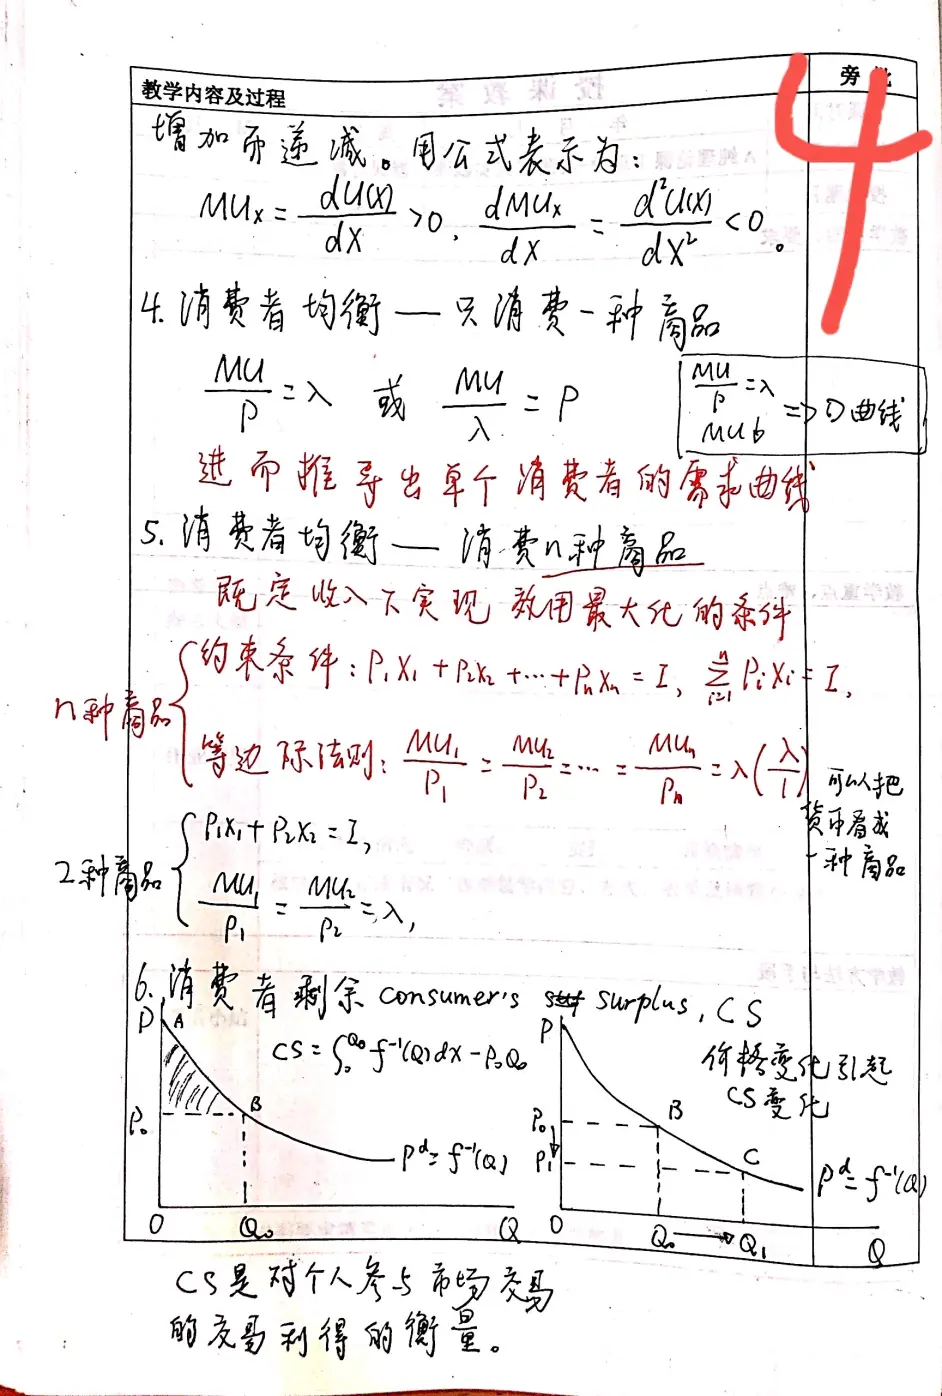 教学内容及过程
旁批
4
增加而递减。用公式表示为：
MUx = dU(X)/dX >0, dMUx/dX = d²U(X)/dX² <0。
4. 消费者均衡 — 只消费一种商品
MU/P = λ 或 MU/λ = P
MU/P = λ
MU↓ => D曲线
进而推导出单个消费者的需求曲线
5. 消费者均衡 — 消费n种商品
既定收入下实现效用最大化的条件
n种商品
约束条件: P₁X₁ + P₂X₂ + ··· + PnXn = I, ∑ⁿᵢ₌₁ PᵢXᵢ = I,
等边际法则: MU₁/P₁ = MU₂/P₂ = ··· = MUn/Pn = λ (λ/1)
可以把
货币看成
一种商品
2种商品
P₁X₁ + P₂X₂ = I,
MU₁/P₁ = MU₂/P₂ = λ,
6. 消费者剩余 consumer's surplus, CS
P A
CS = ∫₀^Q₀ f⁻¹(Q)dx - P₀Q₀
B
P₀
Pᵈ = f⁻¹(Q)
O Q₀ Q
价格变化引起
CS变化
P
P₀ B
P₁ C
Pᵈ = f⁻¹(Q)
O Q₀ → Q₁ Q
CS是对个人参与市场交易
的交易利得的衡量。